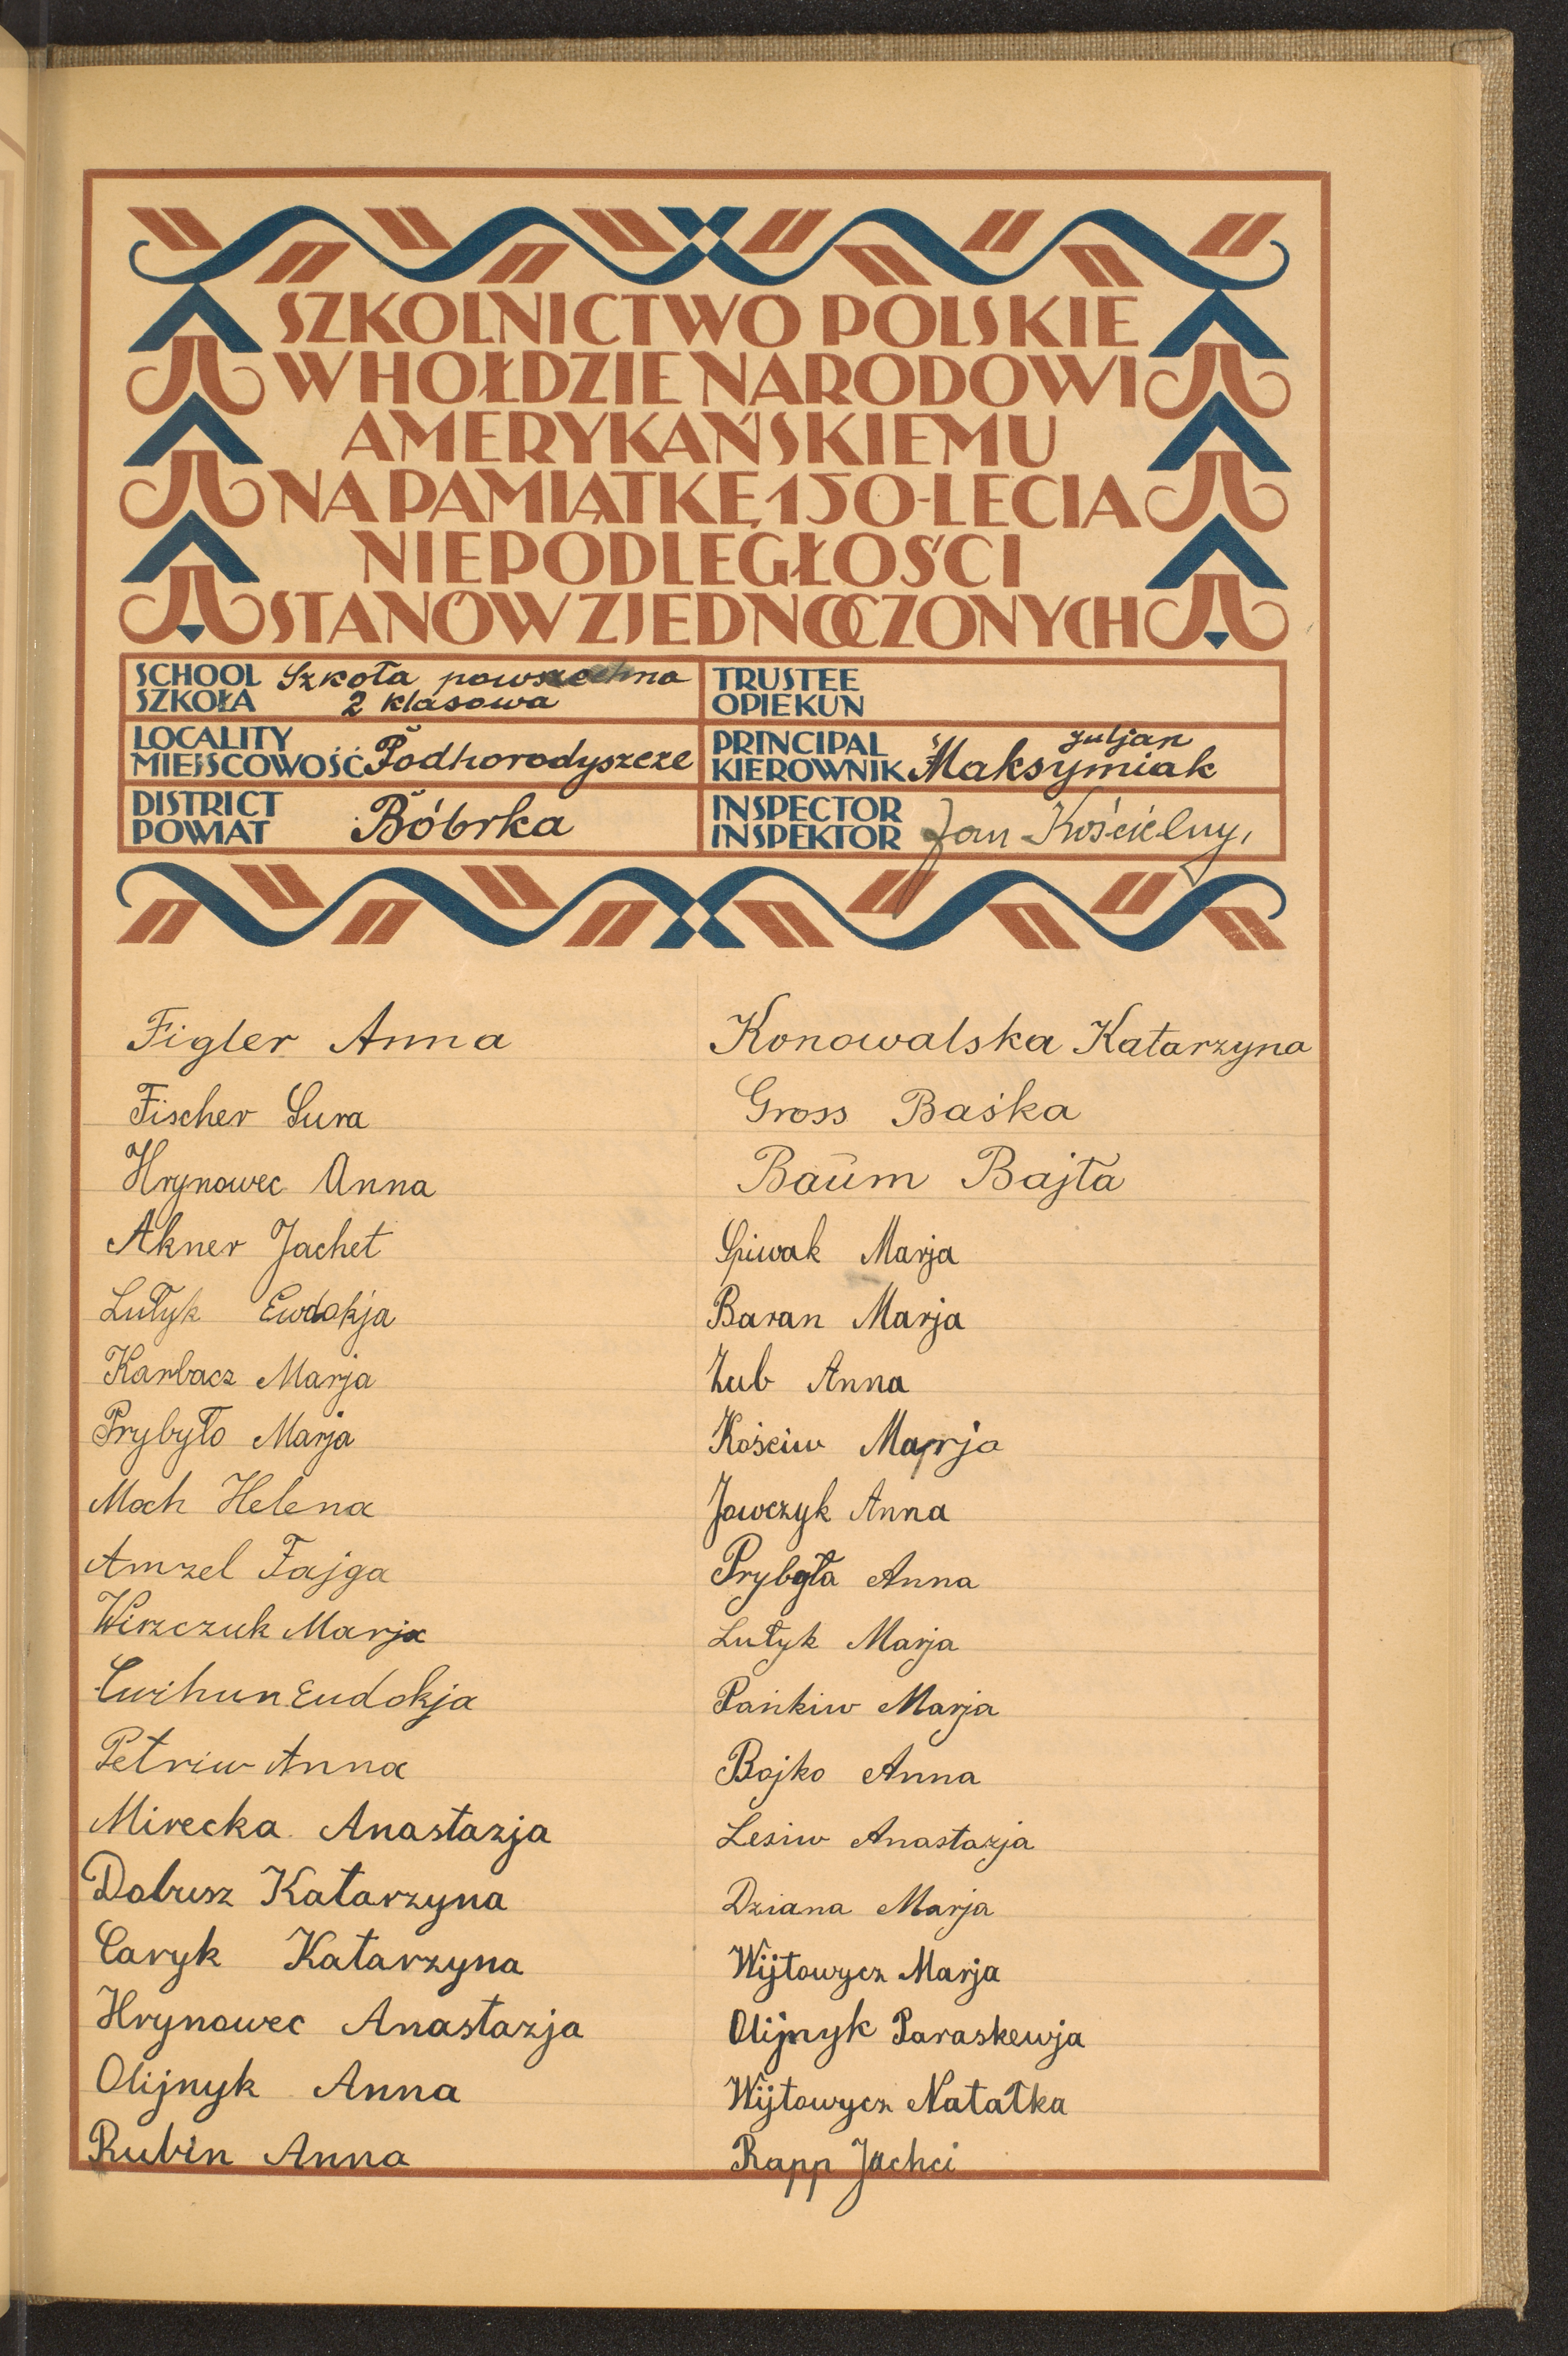 SZKOLNICTWO POLSKIE
W HOŁDZIE NARODOWI
AMERYKAŃSKIEMU
NA PAMIĄTKĘ 150-LECIA
NIEPODLEGŁOŚCI
STANÓW ZJEDNOCZONYCH
SCHOOL
SZKOŁA
Szkoła powszechna
2 klasowa
TRUSTEE
OPIEKUN
LOCALITY
MIEJSCOWOŚĆ
Podhorodyszcze
PRINCIPAL
KIEROWNIK
Juljan
Maksymiak
DISTRICT
POWIAT
Bóbrka
INSPECTOR
INSPEKTOR
Jan Kościelny,
Figler Anna
Fischer Sura
Hrynowec Anna
Akner Jachet
Lutyk Ewdokja
Karbacz Marja
Prybyło Marja
Moch Helena
Amzel Fajga
Wirzczuk Marja
Cwihun Eudokja
Petriw Anna
Mirecka Anastazja
Dobusz Katarzyna
Caryk Katarzyna
Hrynowec Anastazja
Olijnyk Anna
Rubin Anna
Konowalska Katarzyna
Gross Baśka
Baum Bajta
Spiwak Marja
Baran Marja
Zub Anna
Kościw Marja
Jawczyk Anna
Prybyła Anna
Lutyk Marja
Pańkiw Marja
Bojko Anna
Lesiw Anastazja
Dziana Marja
Wijtowycz Marja
Olijnyk Paraskewja
Wijtowycz Natałka
Rapp Jachci